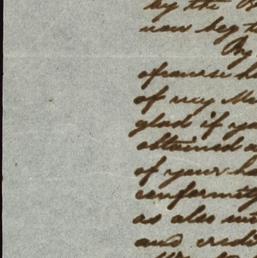 by the
now beg to
By
of course he
of my M
glad if yo
obtained a
of your ha
conformity
as also
and credi